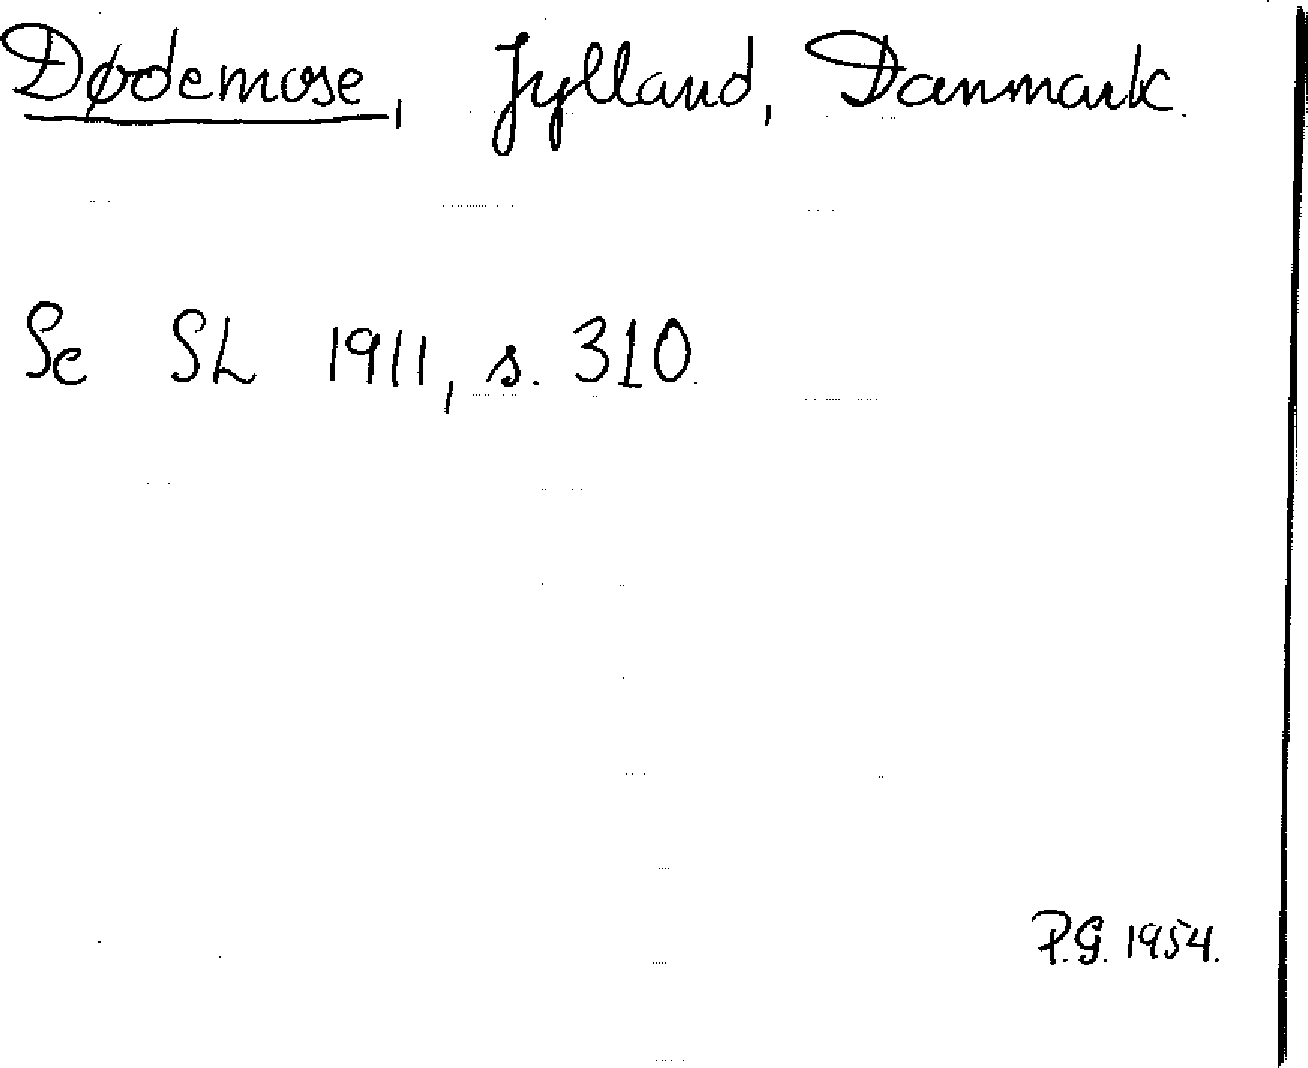 Dødemose, Jylland, Danmark.
Se SL 1911, s. 310.
P.G. 1954.